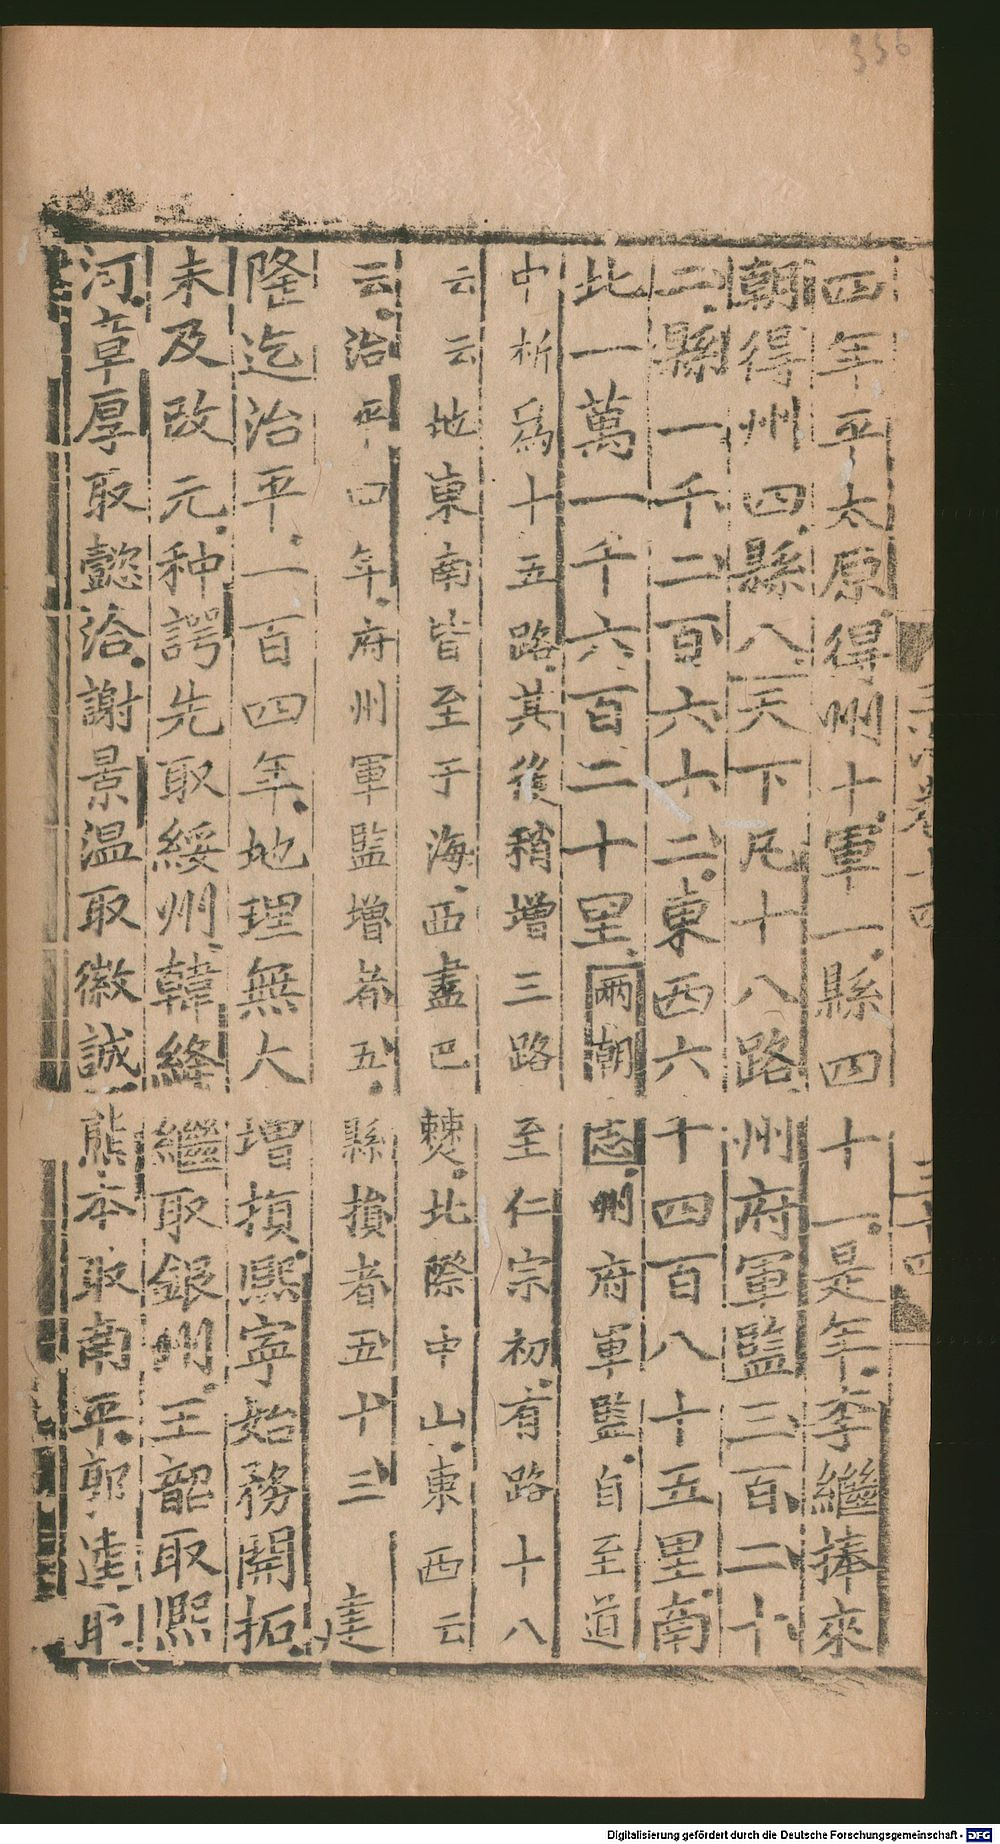 356
四年平太原得州十軍一縣四十一是年李繼捧來
朝得州四縣八天下凡十八路州府軍監三百二十
二縣一千二百六十二東西六千四百八十五里南
北一萬一千六百二十里兩朝志州府軍監自至道
中析為十五路其後稍增三路至仁宗初有路十八
云云地東南皆至于海西盡巴僰北際中山東西云
云治平四年府州軍監增者五縣損者五十三 建
隆迄治平一百四年地理無大增損熙寧始務開拓
未及改元种諤先取綏州韓絳繼取銀州王韶取熙
河章厚取懿洽謝景温取徽誠熊本取南平郭逵取
三十四
Digitalisierung gefördert durch die Deutsche Forschungsgemeinschaft - DFG